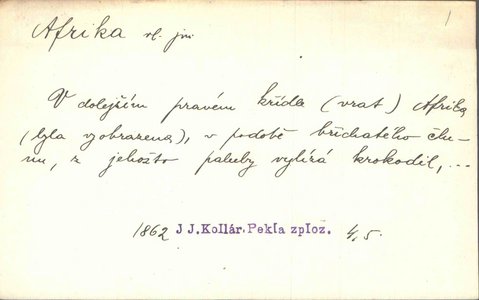 Afrika vl. jm.
1
V dolejším pravém křídle (vrat) Afrika
(byla vyobrazena), v podobě břichatého člu-
nu, z jehožto paluby vylízá krokodil,...
1862 J J.Kollár.Pekla zploz. 4,5.